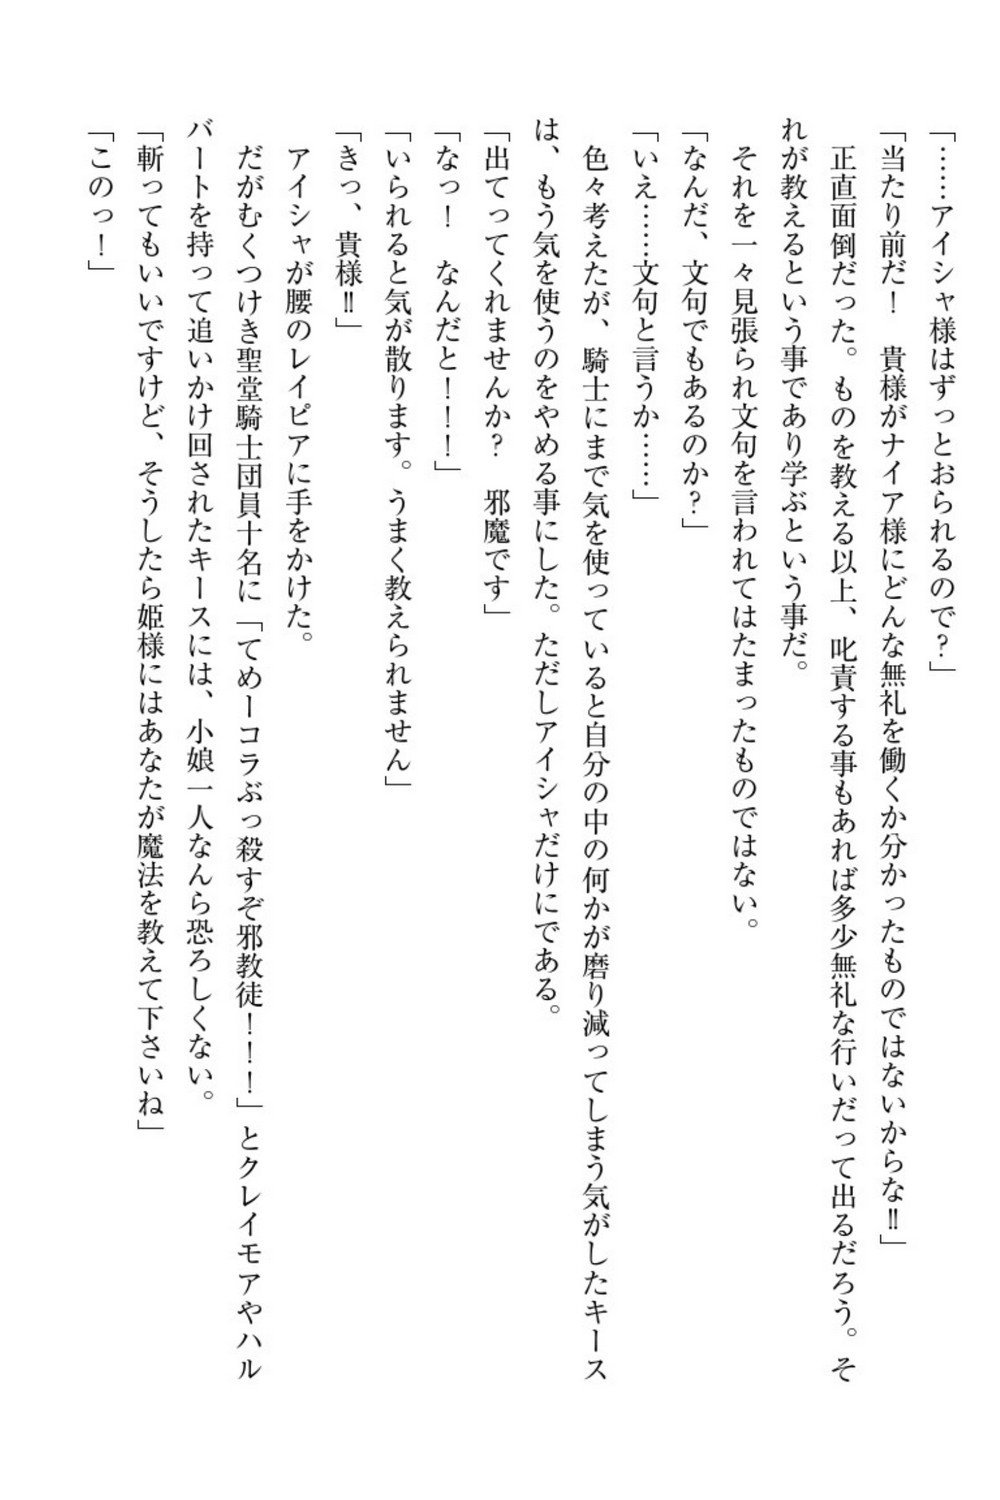 「……アイシャ様はずっとおられるので？」
「当たり前だ！　貴様がナイア様にどんな無礼を働くか分かったものではないからな‼」
　正直面倒だった。ものを教える以上、叱責する事もあれば多少無礼な行いだって出るだろう。そ
れが教えるという事であり学ぶという事だ。
　それを一々見張られ文句を言われてはたまったものではない。
「なんだ、文句でもあるのか？」
「いえ……文句と言うか……」
　色々考えたが、騎士にまで気を使っていると自分の中の何かが磨り減ってしまう気がしたキース
は、もう気を使うのをやめる事にした。ただしアイシャだけにである。
「出てってくれませんか？　邪魔です」
「なっ！　なんだと！！！」
「いられると気が散ります。うまく教えられません」
「きっ、貴様‼」
　アイシャが腰のレイピアに手をかけた。
　だがむくつけき聖堂騎士団員十名に「てめーコラぶっ殺すぞ邪教徒！！！」とクレイモアやハル
バートを持って追いかけ回されたキースには、小娘一人なんら恐ろしくない。
「斬ってもいいですけど、そうしたら姫様にはあなたが魔法を教えて下さいね」
「このっ！」